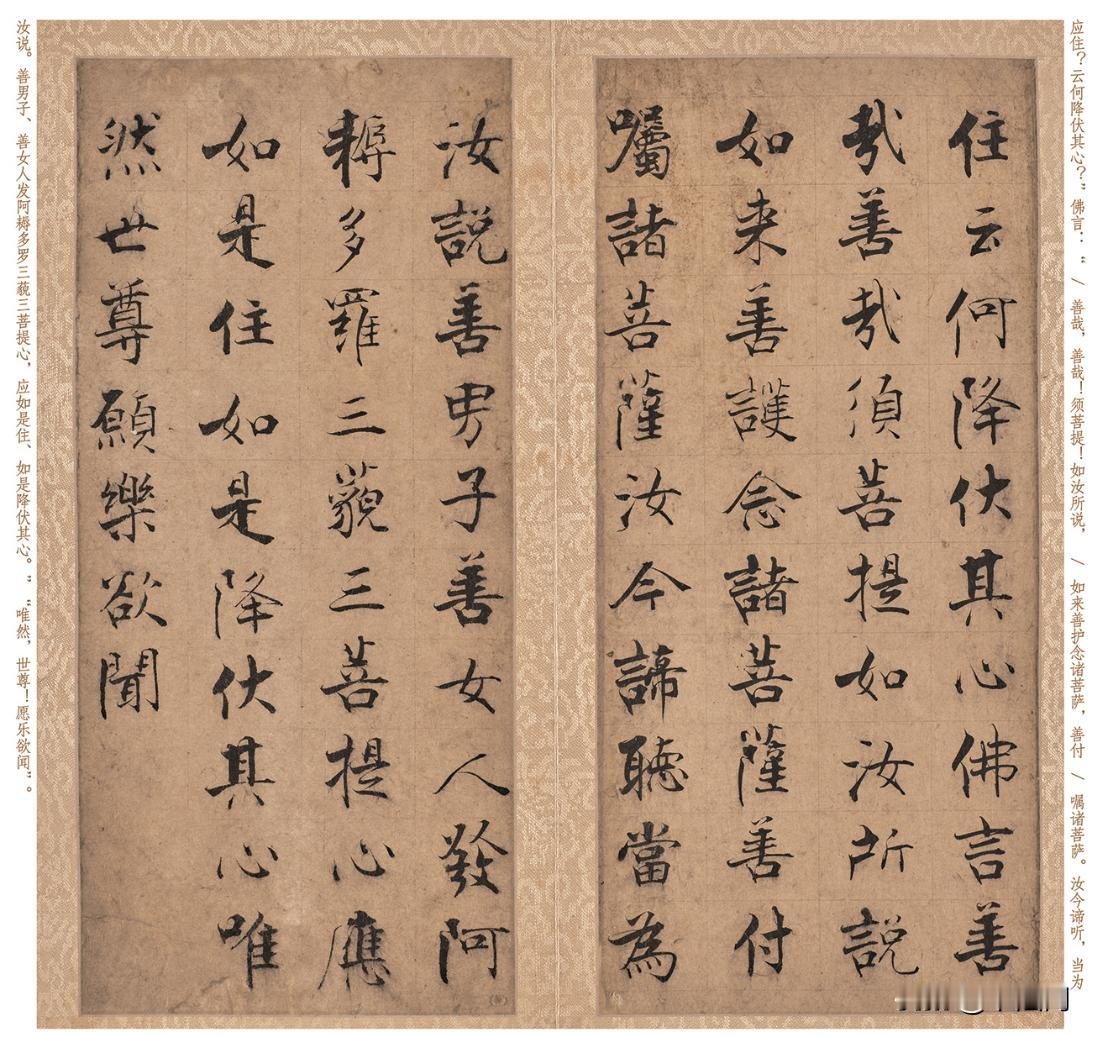 应住？云何降伏其心？”佛言：“ / 善哉，善哉！须菩提！如汝所说， / 如来善护念诸菩萨，善付 / 嘱诸菩萨。汝今谛听，当为
住云何降伏其心佛言善
哉善哉須菩提如汝所説
如来善護念諸菩薩善付
囑諸菩薩汝今諦聽當為
汝説善男子善女人發阿
耨多羅三藐三菩提心應
如是住如是降伏其心唯
然世尊願樂欲聞
汝说。善男子、善女人发阿耨多罗三藐三菩提心，应如是住、如是降伏其心。”“唯然，世尊！愿乐欲闻”。